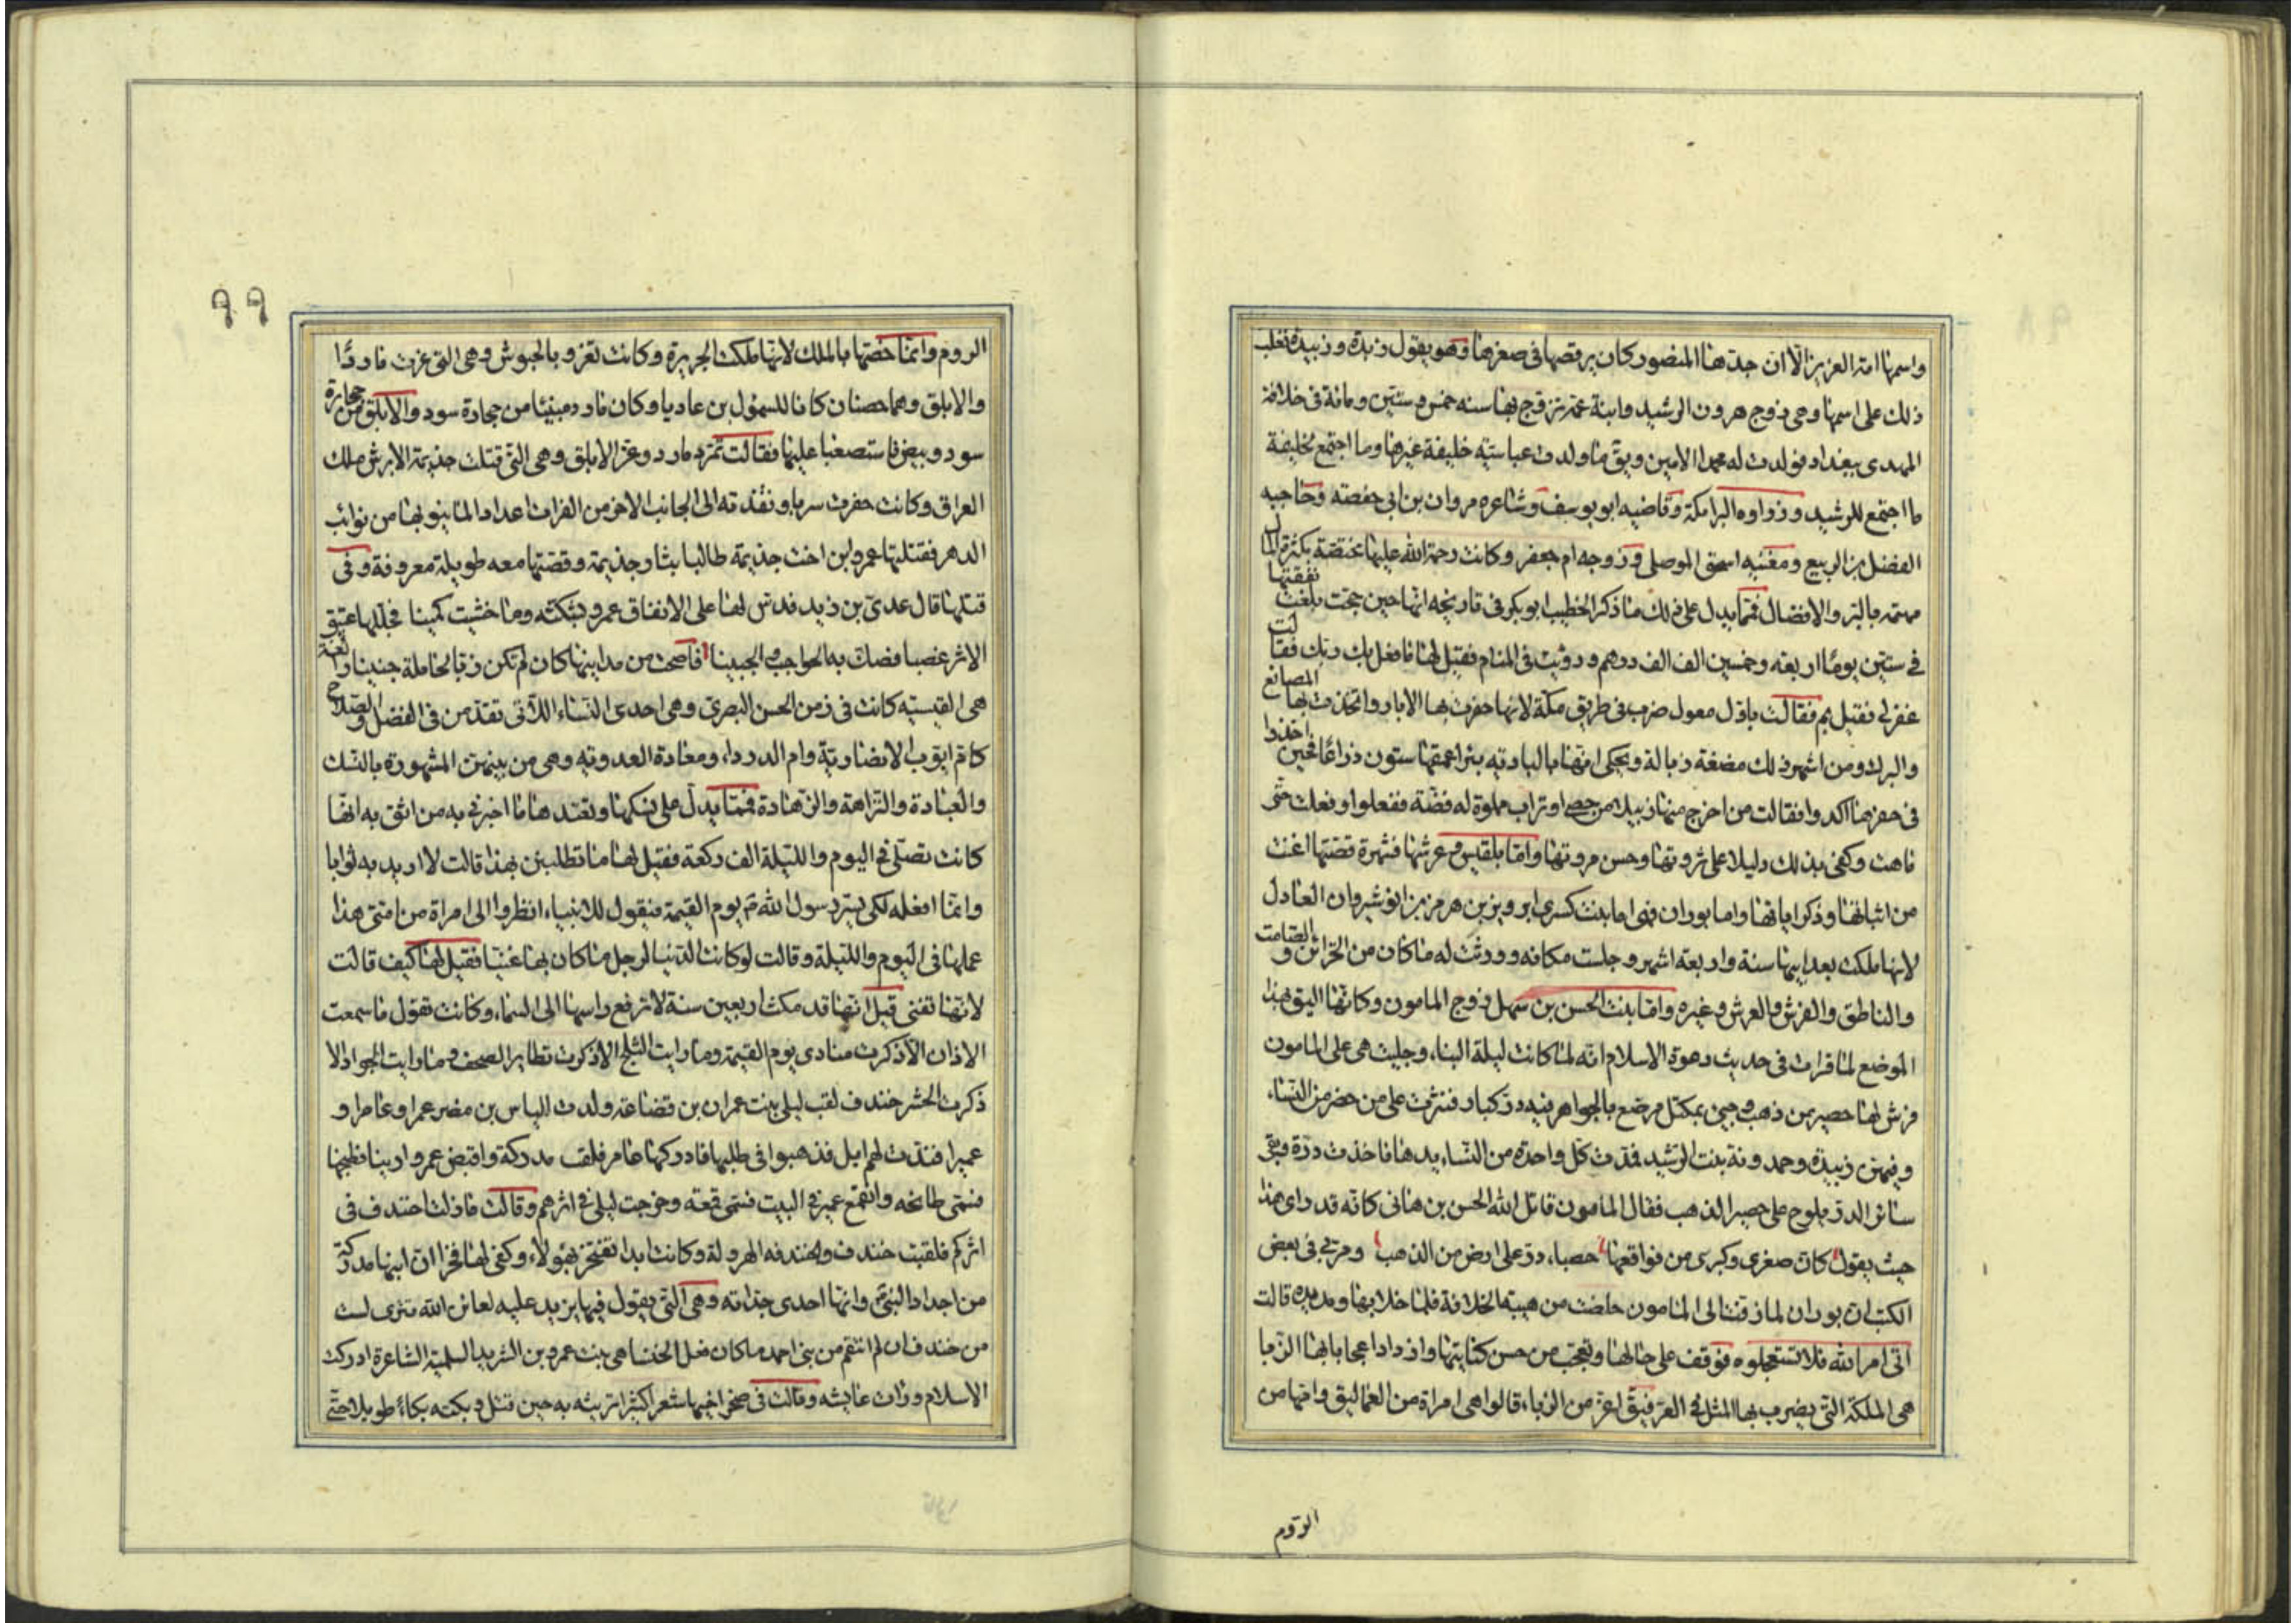 واسمها امة العزيز الّا ان جدّها المنصور كان يرقصها فى صغرها وهو يقول زبدة وزبيدة فغلب
ذلك على اسمها وهى زوج هرون الرشيد وابنة عمّه تزوّج بها سنه خمس وستين ومائة فى خلافة
المهدى ببغداد فولدت له محمدا الامين ويق ما ولدت عباسيّة خليفة غيرها وما اجتمع لخليفة
ما اجتمع للرشيد وزراوه البرامكة وقاضيه ابو يوسف وشاعره مروان بن ابى حفصة وحاجبه
الفضل بن الربيع ومغنّيه اسحق الموصلى وزوجه ام جعفر وكانت رحمة الله عليها مختصّة بكثرة المال
مهتمّه بالبّر والافضال فممّا يدل على ذلك ما ذكر الخطيب ابو بكر فى تاريخه انها حين حجت بلغت نفقتها
فى ستّين يومًا اربعة وخمسين الف الف درهم ورؤيت فى المنام فقيل لها ما فعل بك ربّك فقالت
غفر لى فقيل بم فقالت باوّل معول ضرب فى طريق مكّة لانها حفرت بها الابار واتخذت بها المصانع
والبرك ومن اشهر ذلك مصنعة زبالة ويحكى انّها بالبادية بئرا عمقها ستون ذراعًا فحين اخذوا
فى حفرها اكدوا فقالت من اخرج منها زبيلا من حصى او تراب مملوة له فضّة ففعلوا وفعلت حتّى
ماهت وكفى بذلك دليلا على ثروتها وحسن مروتها وامّا بلقيس وعرشها فشهرة قصّتها اغنت
من اثباتها وذكر اياتها واما بوران فهى اما بنت كسرى ابرويز بن هرمز بن انوشيروان العادل
لانها ملكت بعد ابيها سنة واربعة اشهر وجلست مكانه وورثت له ما كان من الخزائن والصّامت
والناطق والفرش والعرش وغيره وامّا بنت الحسن بن سهل زوج المامون وكانّها اليق بهذا
الموضع لما قرات فى حديث دعوة الاسلام انّه لمّا كانت ليلة البناء وجليت هى على المامون
فرش لها حصير من ذهب وجىئ بمكتل مرصّع بالجواهر فيه درّ كبار فنثرت على من حضر من النّساء
وفيهنّ زبيدة وحمدونة بنت الرّشيد فمدّت كلّ واحدة من النّساء يدها فاخذت درّة وبقى
سائر الدرّ يلوح على حصير الذهب فقال المامون قاتل الله الحسن بن هانى كانّه قد راى هذا
حيث يقول كانّ صغرى وكبرى من فواقعها حصباء درّ على ارض من الذهب ومرّ بى فى بعض
الكتب ان بوران لما زفّت الى المامون حاضت من هيبة الخلافة فلمّا خلا بها ومدّ يده قالت
اتى امر الله فلا تستعجلوه فوقف على حالها وتعجّب من حسن كنايتها وازداد اعجابا بها الزّبا
هى الملكة التى يضرب بها المثل فى العزّ فيقّ اعز من الزباء قالوا هى امراة من العماليق وامّها من
الرّوم
٩٩
الروم وانّما خصّتها بالملك لانّها ملكت الجزيرة وكانت تغزو بالجيوش وهى التى غزت ماردًا
والابلق وهما حصنان كانا للسمؤل بن عاديا وكان مارد مبنيّا من حجارة سود والابلق من حجارة
سود وبيض فاستصعبا عليها فقالت تمرّد مارد وعزّ الابلق وهى التّى قتلت جذيمة الابرش ملك
العراق وكانت حفرت سربا ونفّذته الى الجانب الاخر من الفرات اعدادا لما ينوبها من نوائب
الدهر فقتلها عمرو ابن اخت جذيمة طالبا بثار جذيمة وقصّتها معه طويلة معروفة وفى
قتلها قال عدىّ بن زيد فدسّ لها على الانفاق عمرو بشكته وما خشيت كمينا فجلّلها عتيق
الاثر عضبا فصكّ به الحواجب والجبينا فاضحت من مداينها كان لم تكن زبّا لحاملة جنينا رابعة
هى القيسيّه كانت فى زمن الحسن البصرىّ وهى احدى النّساء اللّاتى تقدّمن فى الفضل والصّلاح
كامّ ايّوب الانصاريّة وام الدرداء ومعاذة العدويّه وهى من بينهنّ المشهورة بالنّسك
والعبادة والنّزاهة والزّهادة فممّا يدلّ على نسكها وتعبّدها ما اخبرنى به من اثق به انّها
كانت تصلّى فى اليوم واللّيلة الف ركعة فقيل لها ما تطلبين بهذا قالت لا اريد به ثوابا
وانّما افعله لكى يسرّ رسول الله صّ يوم القيمة فيقول للانبياء انظروا الى امراة من امّتى هذا
عملها فى اليوم واللّيلة وقالت لو كانت الدّنيا لرجل ما كان بها غنيّا فقيل لها كيف قالت
لانّها تفنى قيل انّها قد مكثت اربعين سنة لا ترفع راسها الى السّماء وكانت تقول ما سمعت
الاذان الّا ذكرت منادى يوم القيمة وما رايت الثلج الّا ذكرت تطاير الصحف وما رايت الجراد الّا
ذكرت الحشر خندف لقب ليلى بنت عمران بن قضاعة ولدت لالياس بن مضر عمرا وعامرا و
عميرا فندّت لهم ابل فذهبوا فى طلبها فادركها عامر فلقب مدركة واقتنص عمرو ارنبا فطبخها
فسمّى طابخه وانقمع عمير فى البيت فسمّى قمعة وخرجت ليلى فى اثرهم وقالت مازلت اخندف فى
اثركم فلقبت خندف والخندفه الهرولة وكانت ابدا تفتخر بهؤلاء وكفى لها فخرا انّ ابنها مدركة
من اجداد النبىّ صّ وانها احدى جدّاته وهى الّتى يقول فيها يزيد عليه لعائن الله تترى لست
من خندف ان لم انتقم من بنى احمد ما كان فعل الخنسا هى بنت عمرو بن الشريد السلميّة الشاعرة ادركت
الاسلام وزارت عايشه وقالت فى صخر اخيها شعرا كثيرا ترثيه به حين قتل وبكته بكاءً طويلا حتّى